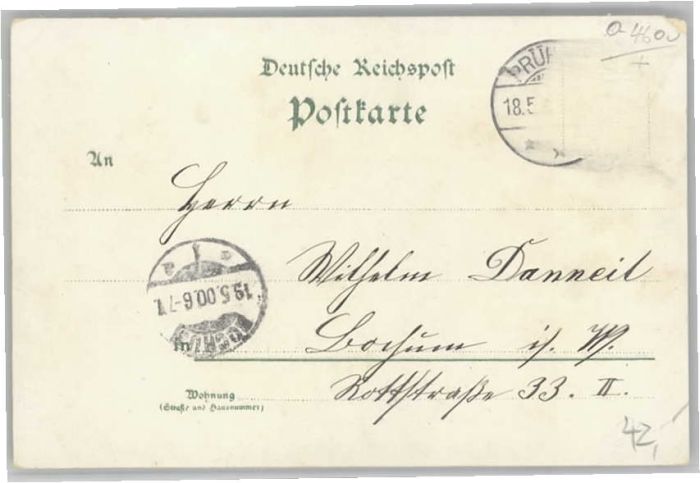 a 4600
Deutsche Reichspost
Postkarte
BRÜH
18.5
An
Herrn
Wilhelm Danneil
19.5.00.6-7
Bochum i/. W.
In
Rottstraße 33. II.
Wohnung
(Straße und Hausnummer)
42,